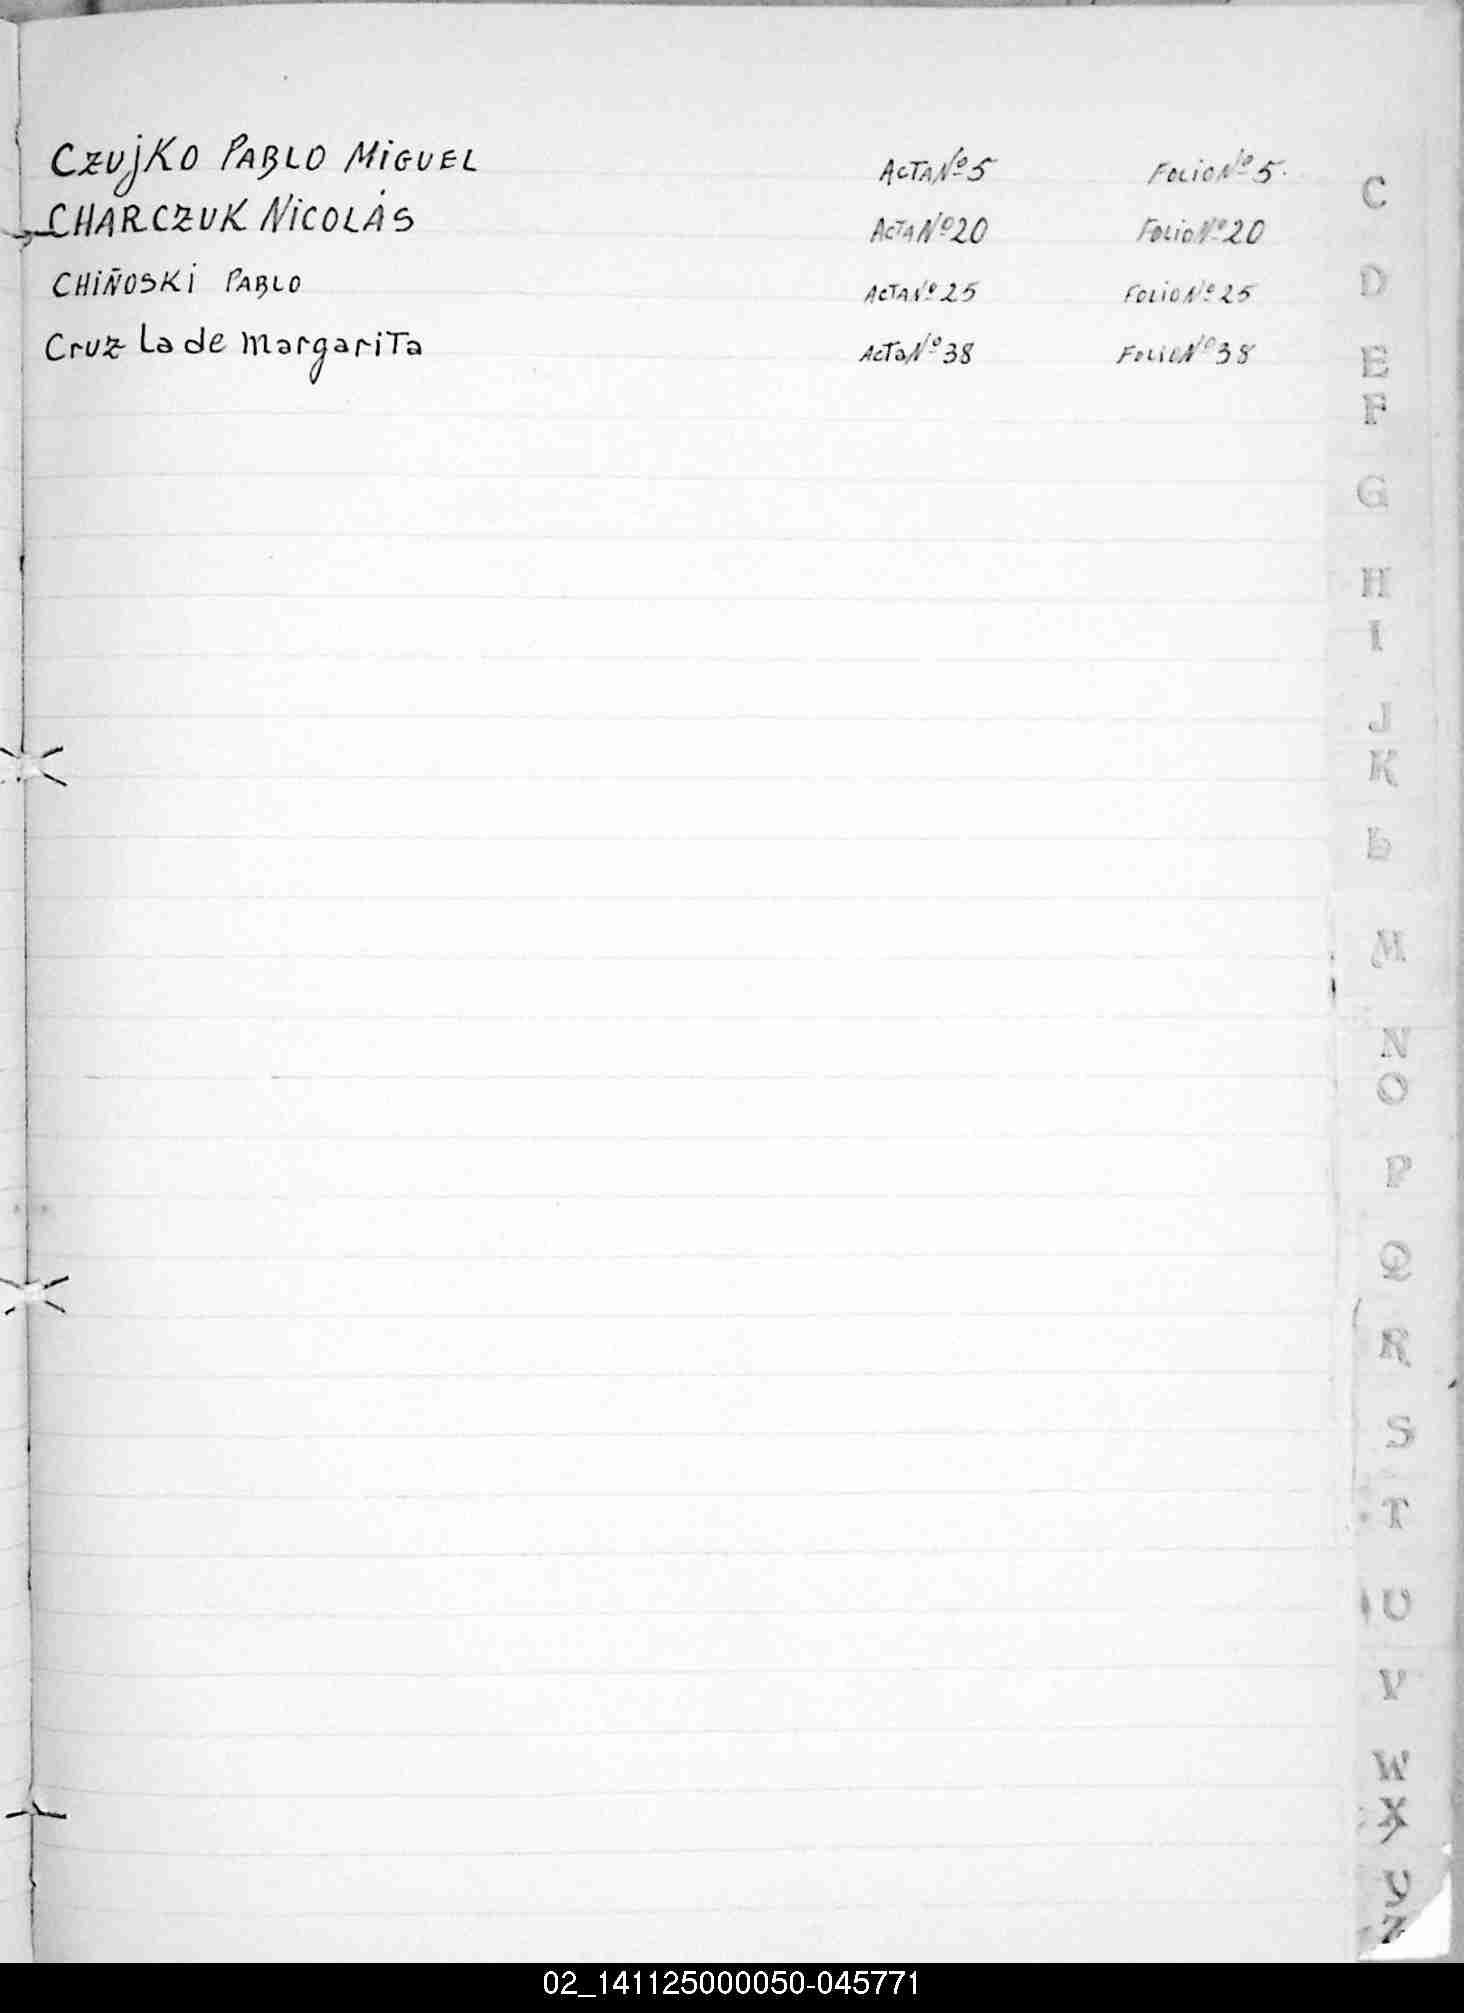 CZUJKO PABLO MIGUEL ACTA Nº 5 FOLIO Nº 5.
CHARCZUK NICOLÁS ACTA Nº 20 FOLIO Nº 20
CHIÑOSKI PABLO ACTA Nº 25 FOLIO Nº 25
Cruz La de Margarita ACTa Nº 38 FOLIO Nº 38
C
D
E
F
G
H
I
J
K
L
M
N
O
P
Q
R
S
T
U
V
W
X
Y
Z
02_141125000050-045771